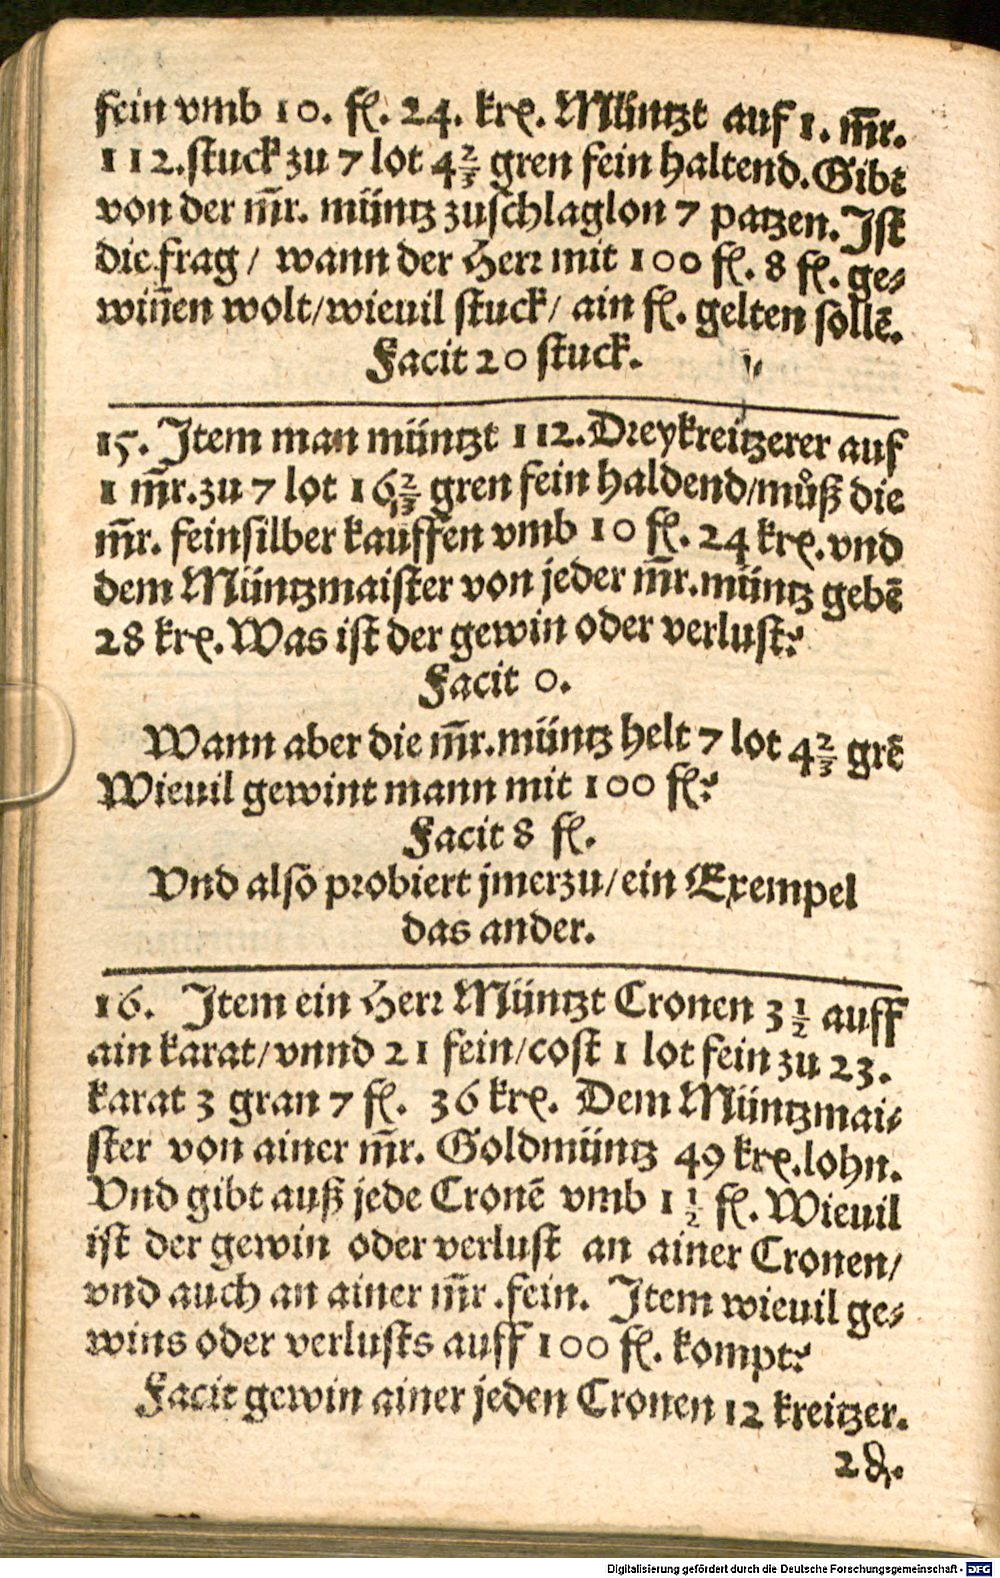 fein vmb 10. fl. 24. krꝛ. Müntzt auf 1. m̄r.
112. stuck zu 7 lot 4 2/3 gren fein haltend. Gibt
von der m̄r. müntz zuschlaglon 7 patzen. Ist
die frag / wann der Herr mit 100 fl. 8 fl. ge⸗
wiñen wolt/wieuil stuck/ ain fl. gelten sollē.
Facit 20 stuck.
15. Item man müntzt 112. Dreykreitzerer auf
1 m̄r. zu 7 lot 16 2/3 gren fein haldend/můß die
m̄r. feinsilber kauffen vmb 10 fl. 24 krꝛ. vnd
dem Müntzmaister von jeder m̄r. müntz gebē
28 krꝛ. Was ist der gewin oder verlust?
Facit 0.
Wann aber die m̄r. müntz helt 7 lot 4 2/3 grē
Wieuil gewint mann mit 100 fl?
Facit 8 fl.
Vnd also probiert jmerzu/ein Exempel
das ander.
16. Item ein Herr Müntzt Cronen 3 1/2 auff
ain karat/vnnd 21 fein/cost 1 lot fein zu 23.
karat 3 gran 7 fl. 36 krꝛ. Dem Müntzmai⸗
ster von ainer m̄r. Goldmüntz 49 krꝛ. lohn.
Vnd gibt auß jede Cronē vmb 1 1/2 fl. Wieuil
ist der gewin oder verlust an ainer Cronen/
vnd auch an ainer m̄r. fein. Item wieuil ge⸗
wins oder verlusts auff 100 fl. kompt?
Facit gewin ainer jeden Cronen 12 kreitzer.
2 ₰.
Digitalisierung gefördert durch die Deutsche Forschungsgemeinschaft - DFG